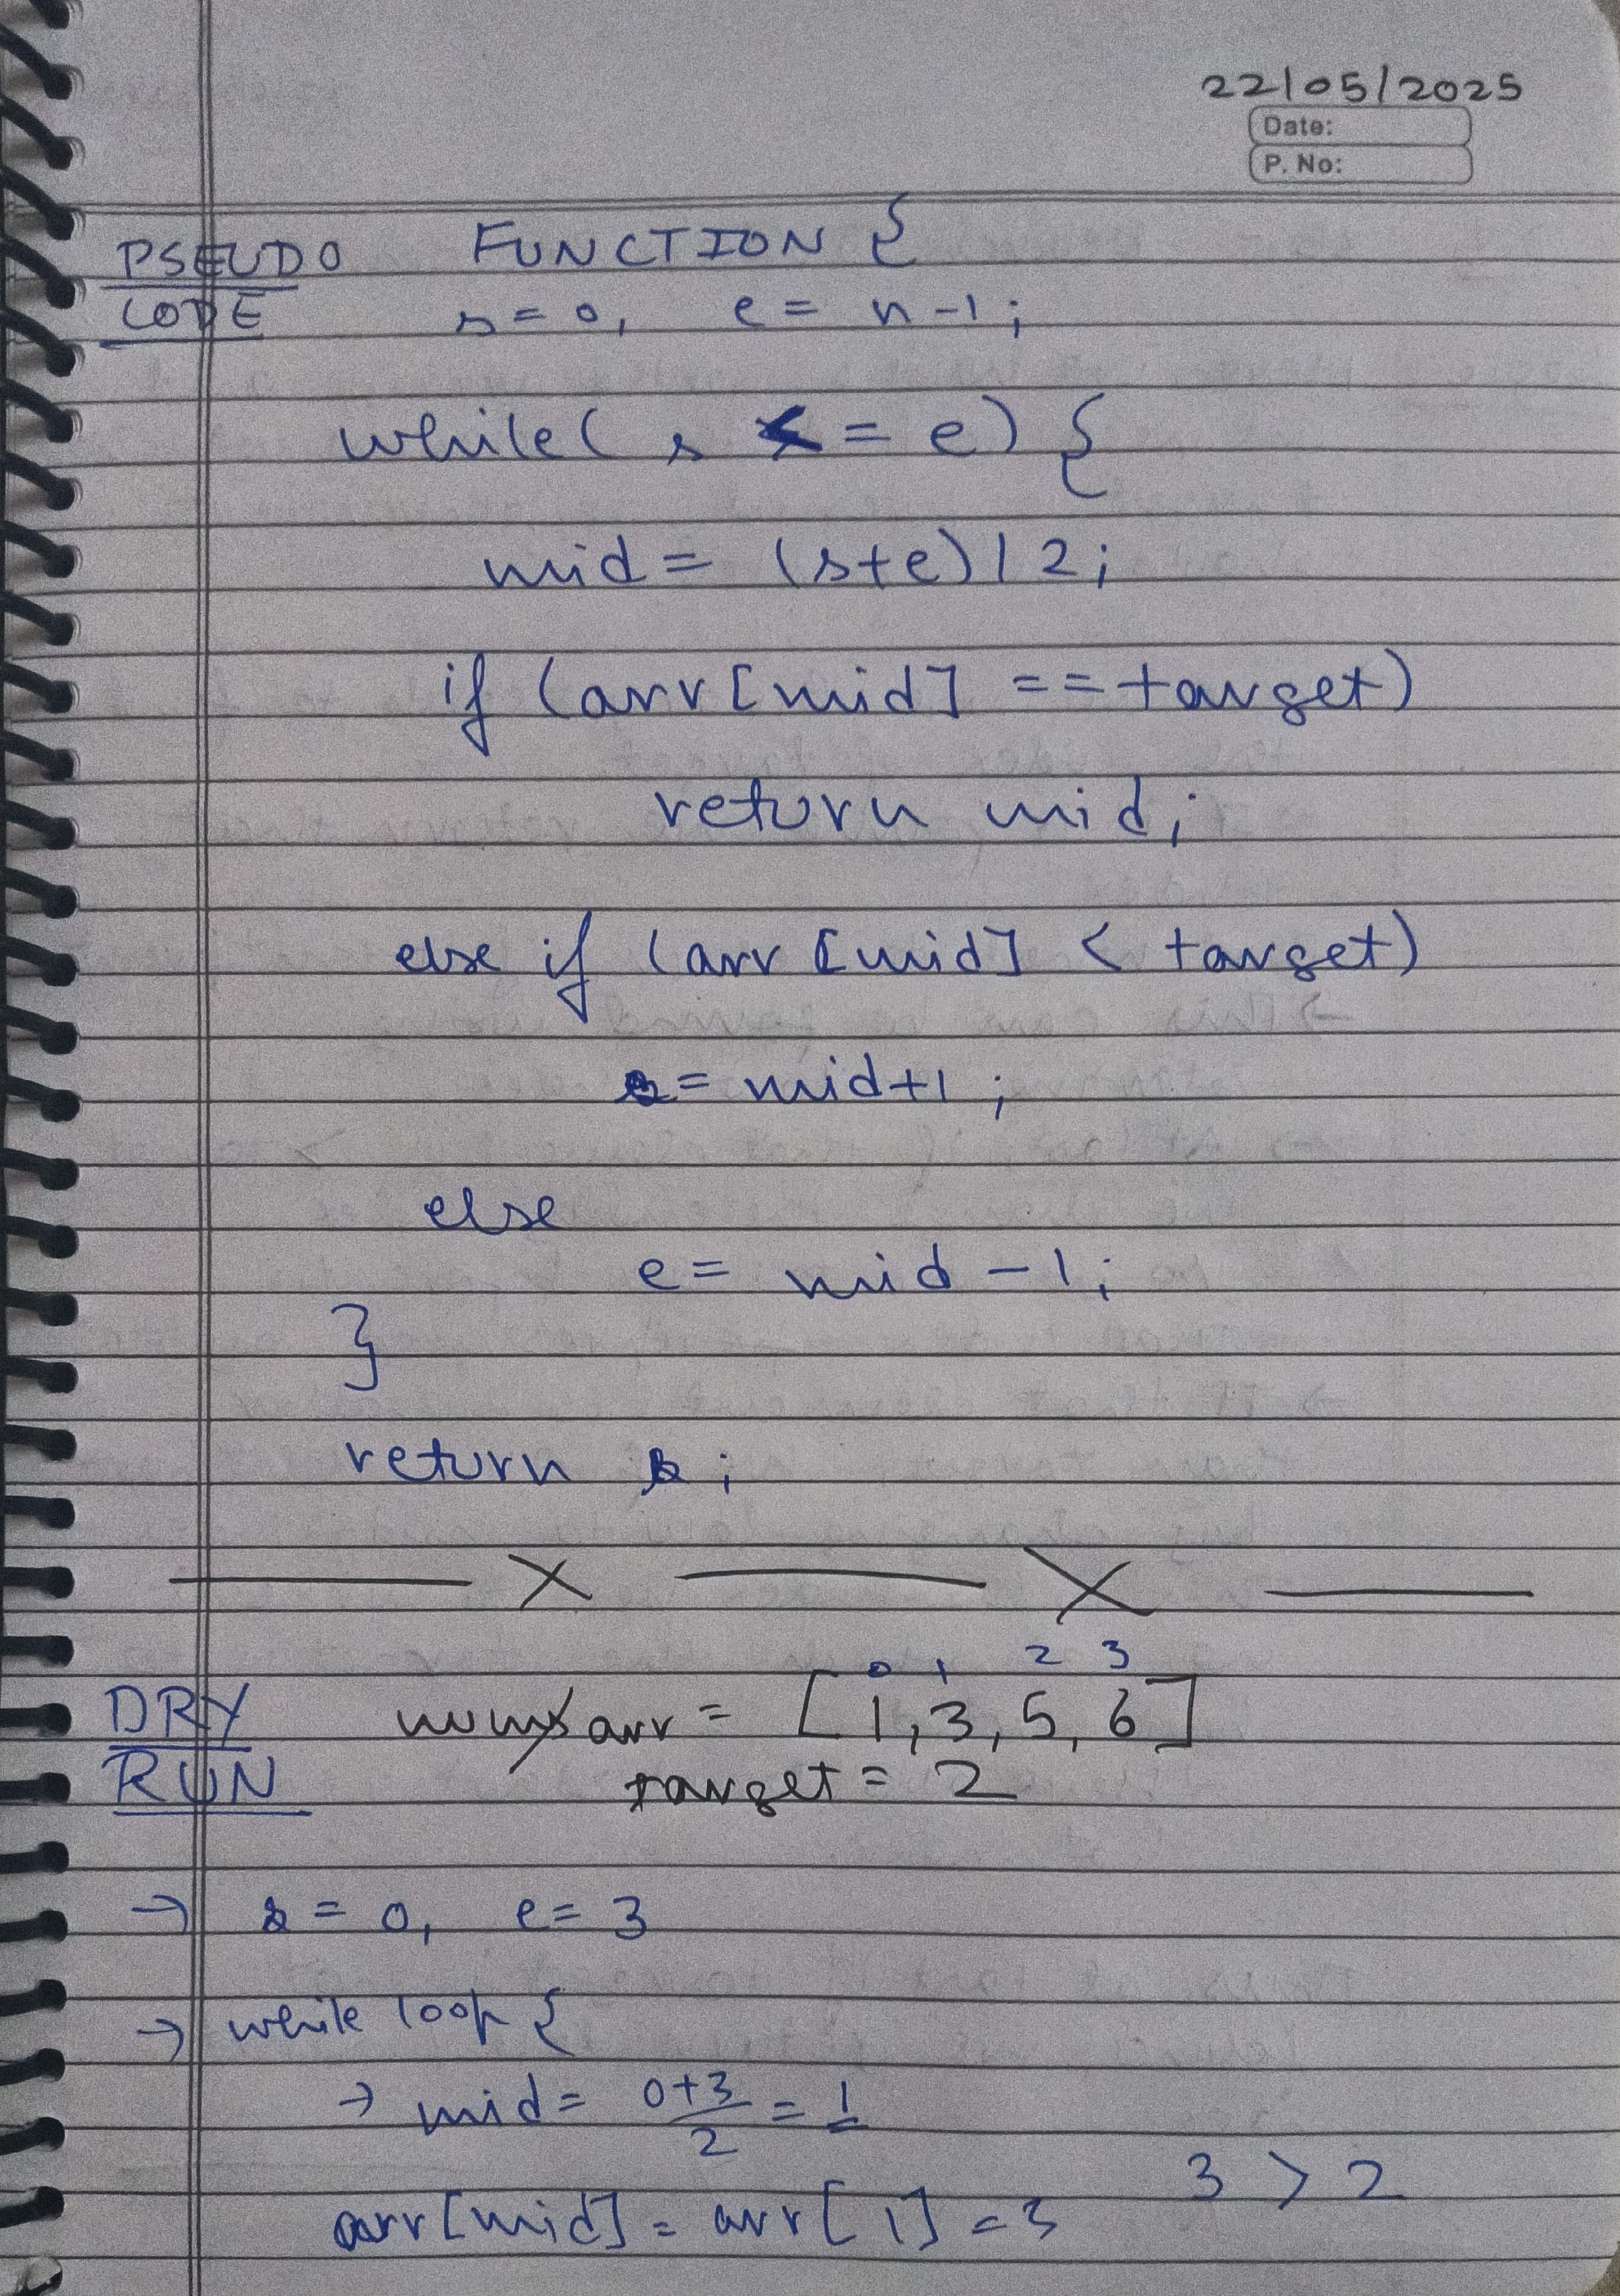 22/05/2025
Date:
P. No:
PSEUDO FUNCTION {
CODE s=0, e= n-1;
while( s <= e) {
mid= (s+e)/2;
if (arr[mid] ==target)
return mid;
else if (arr[mid] < target)
s= mid+1;
else
e= mid -1;
}
return s;
— X — X —
0 1 2 3
DRY arr = [1,3,5,6]
RUN target = 2
→ s = 0, e= 3
→ while loop {
→ mid= 0+3/2 = 1
3 > 2
arr[mid] = arr[1] =3